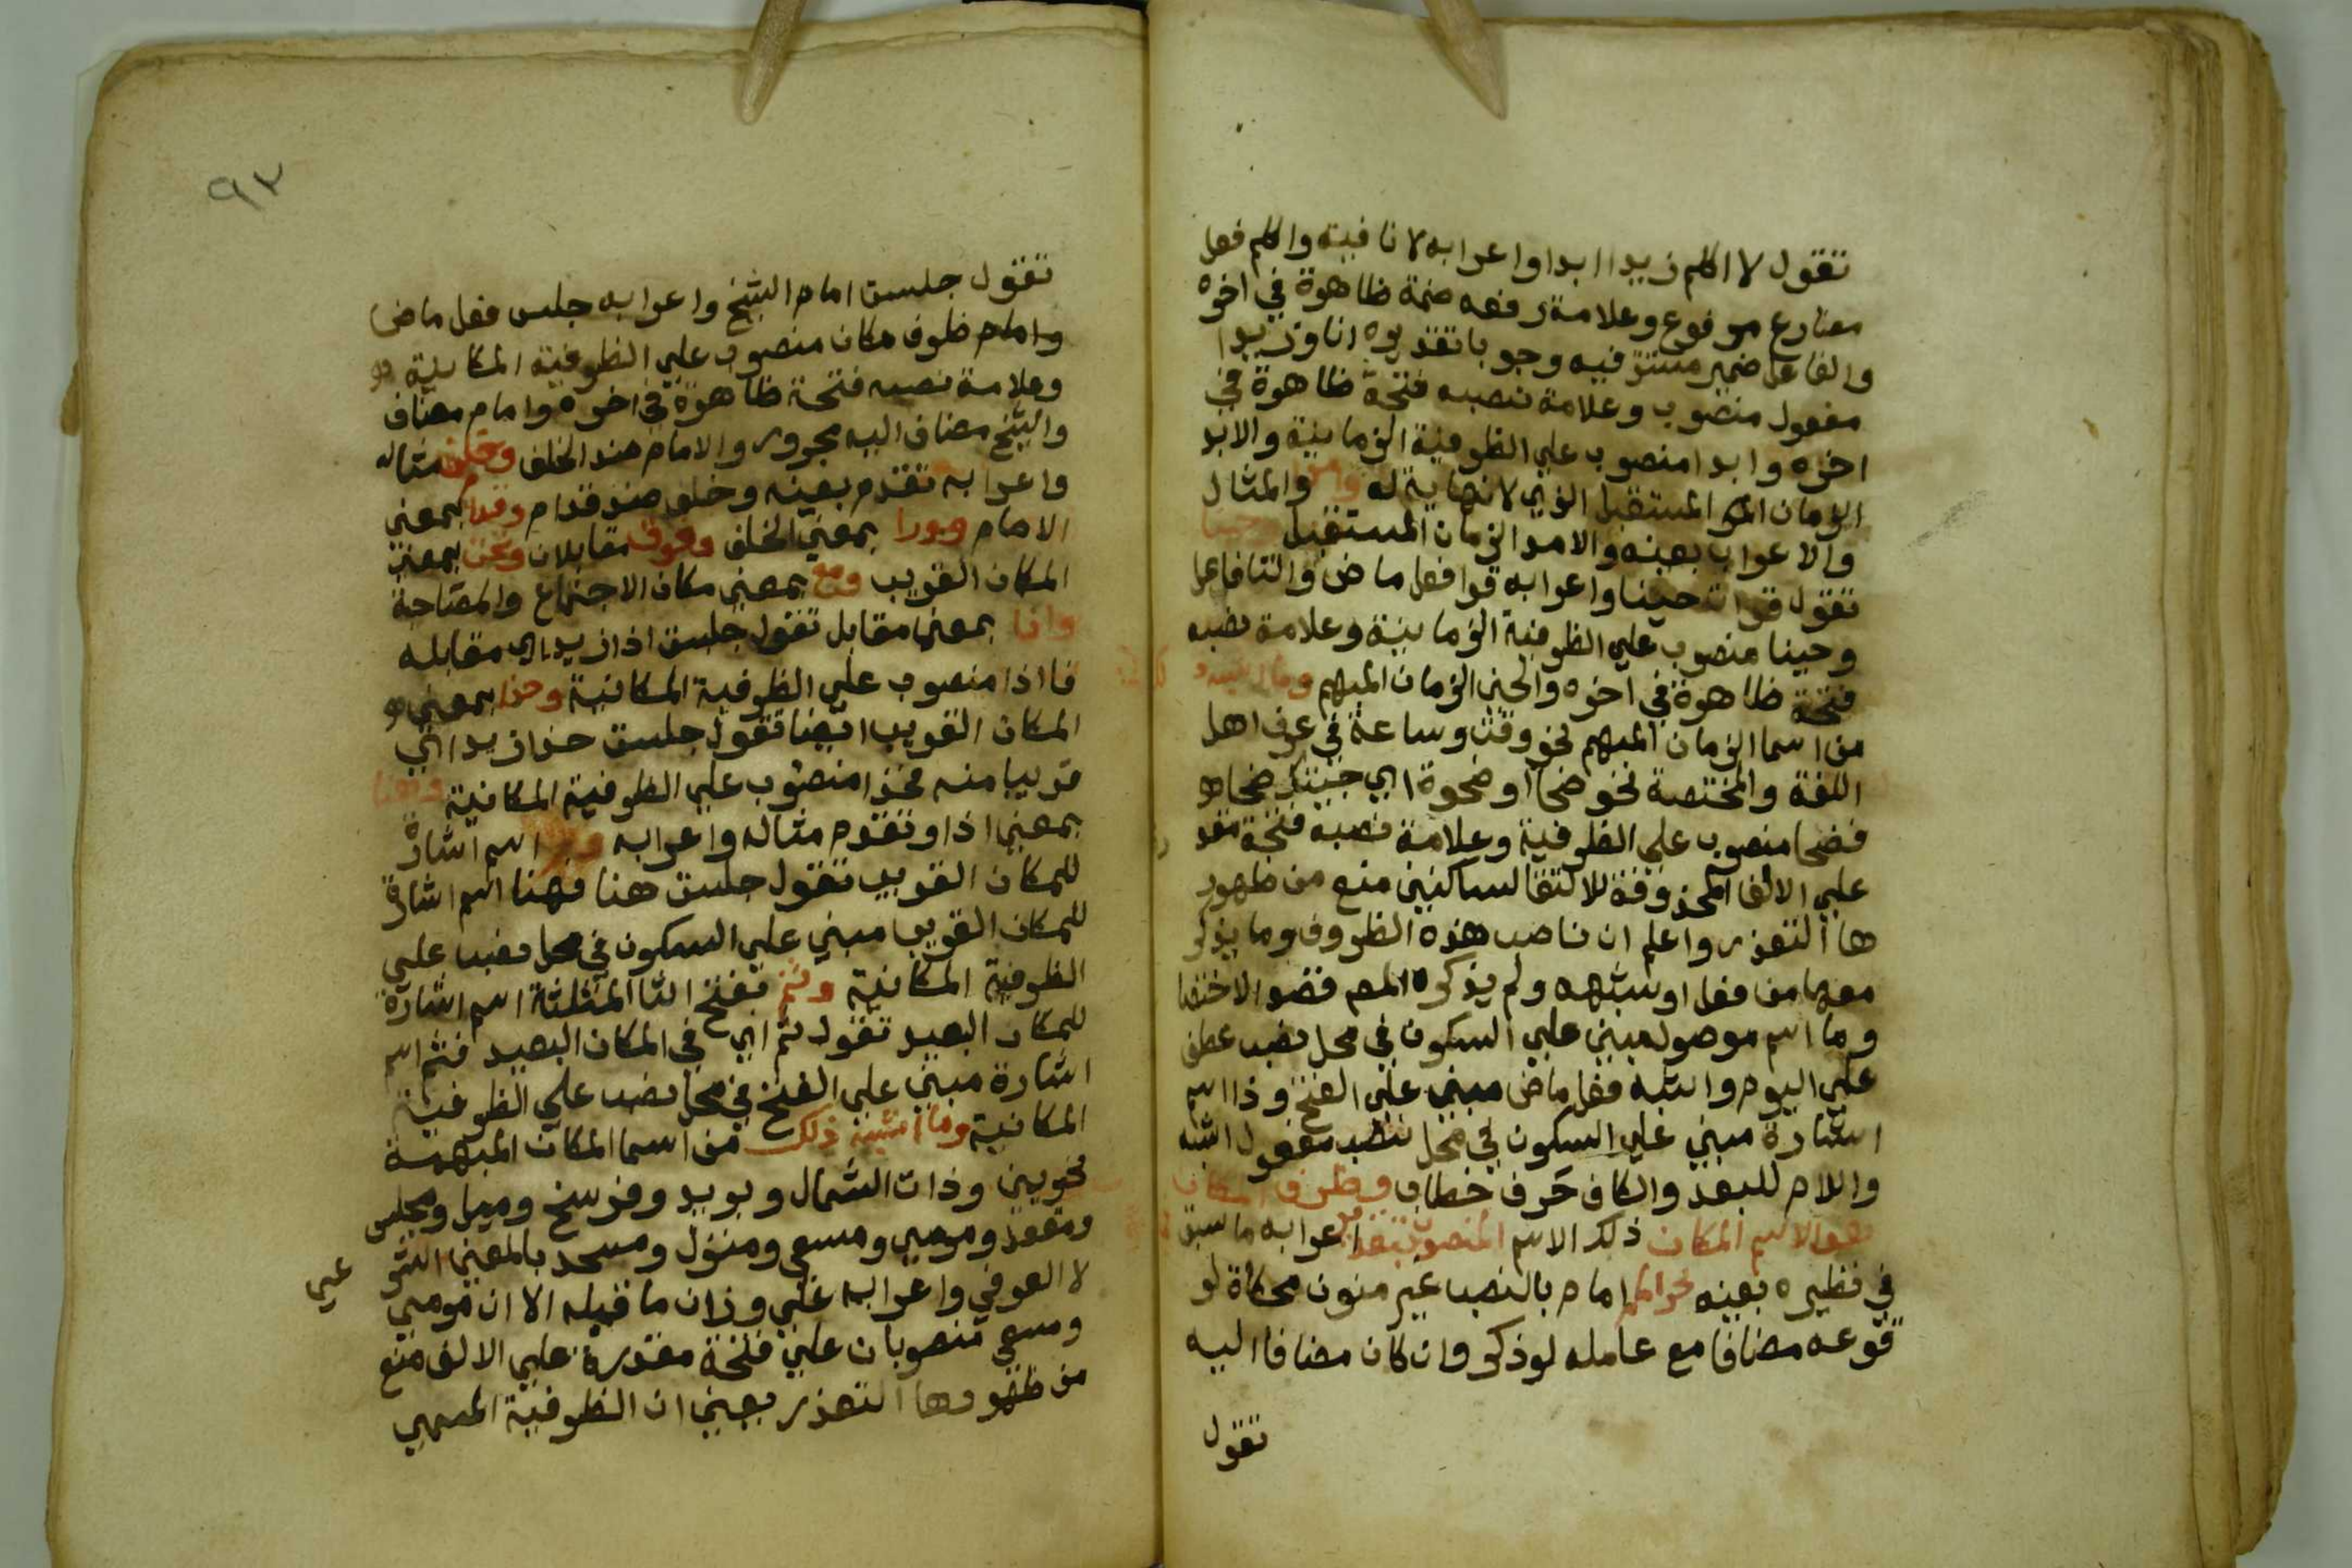 تقول لا اكلم زيدا ابدا واعرابه لا نافية واكلم فعل
مضارع مرفوع وعلامة رفعه ضمة ظاهرة في اخره
والفاعل ضمير مستتر فيه وجوبا تقديره انا وزيدا
مفعول منصوب وعلامة نصبه فتحة ظاهرة في
اخره وابدا منصوب علي الظرفية الزمانية والابد
الزمان المستقبل الذي لا نهاية له وامدا والمثال
والاعراب بعينه والامد الزمان المستقبل وحينا
تقول قرات حينا واعرابه قرا فعل ماض والتا فاعل
وحينا منصوب علي الظرفية الزمانية وعلامة نصبه
فتحة ظاهرة في اخره والحين الزمان المبهم وما اشبه
من اسما الزمان المبهم نحو وقت وساعة في عرف اهل
اللغة والمختصة نحو ضحا او ضحوة اي جيتك ضحا
فضحا منصوب علي الظرفية وعلامة نصبه فتحة مقد
علي الالف المحذوفة للالتقا لساكنين منع من ظهور
ها التعذر واعلم ان ناصب هذه الظروف وما يذكر
معها من فعل او شبهه ولم يذكره المص فقصد الاختصا
وما اسم موصول مبني علي السكون في محل نصب عطف
علي اليوم واشبه فعل ماض مبني علي الفتح وذا اسم
اشارة مبني علي السكون في محل نصب مفعول اشبه
واللام للبعد والكاف حرف خطاب وظرف المكان
هو الاسم المكان ذلك الاسم المنصوب بتقدير في اعرابه ما سبق
في نظيره بعينه نحو امام بالنصب غير منون محكاة لو
قوعه مضافا مع عامله لو ذكر وان كان مضافا اليه
تقول
٩٣
تقول جلست امام الشيخ واعرابه جلس فعل ماض
وامام ظرف مكان منصوب علي الظرفية المكانية
وعلامة نصبه فتحة ظاهرة في اخره وامام مضاف
والشيخ مضاف اليه مجرور والامام ضد الخلف وخلف مثاله
واعرابه تقدم بعينه وخلف ضد قدام وقدام بمعني
الامام وورا بمعني الخلف وفوق مقابلان وتحت بمعني
المكان القريب ومع بمعني مكان الاجتماع والمصاحبة
واذا بمعني مقابل تقول جلست اذا زيد اي مقابله
فا اذا منصوب علي الظرفية المكانية وحذا بمعني
المكان القريب ايضا تقول جلست حذا زيد اي
قريبا منه فحذا منصوب علي الظرفية المكانية وهنا
بمعني اذا وتقدم مثاله واعرابه اسم اشارة
للمكان القريب تقول جلست هنا فهنا اسم اشارة
للمكان القريب مبني علي السكون في محل نصب علي
الظرفية المكانية وثم بفتح الثا المثلثة اسم اشارة
للمكان البعيد تقول ثم اي في المكان البعيد فثم اسم
اشارة مبني علي الفتح في محل نصب علي الظرفية
المكانية وما اشبه ذلك من اسما المكان المبهمة
نحو يمين وذات الشمال وبريد وفرسخ وميل ومجلس
ومقعد ومرمي ومسعي ومنزل ومسجد بالمعني اللغو
لا العرفي واعرابه علي وزان ما قبله الا ان مرمي
ومسعي منصوبان علي فتحة مقدرة علي الالف منع
من ظهورها التعذر بعني ان الظرفية المسمي